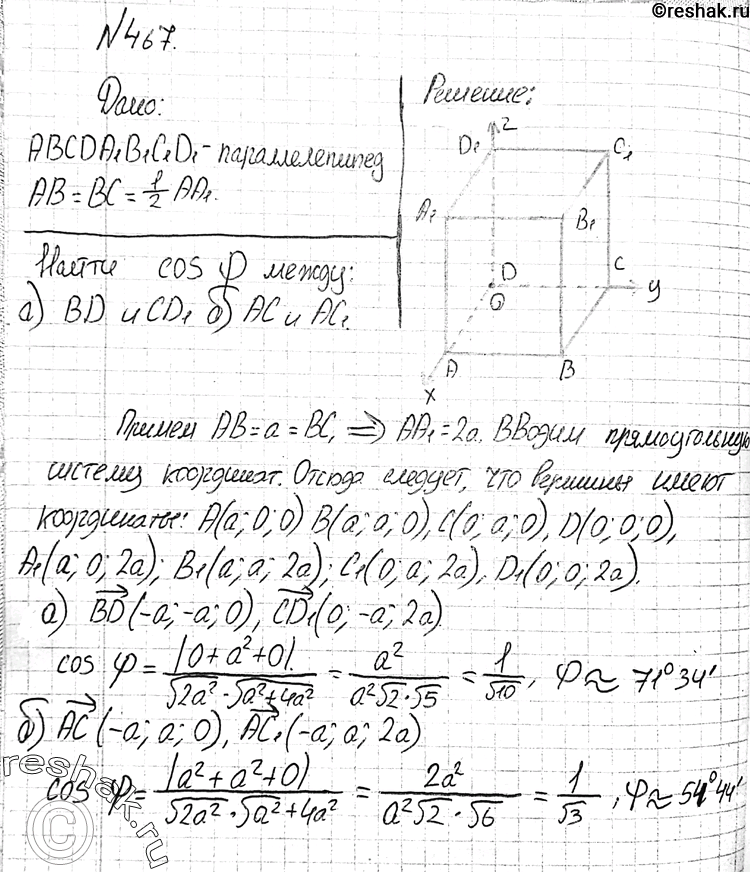 ©reshak.ru
№467.
Дано:
ABCDA₁B₁C₁D₁ - параллелепипед
AB = BC = 1/2 AA₁.
Найти cos φ между:
а) BD и CD₁ б) AC и AC₁.
Решение:
z
D₁ C₁
A₁ B₁
D C
O y
A B
x
Примем AB = a = BC, ⇒ AA₁ = 2a. ВВодим прямоугольную
систему координат. Отсюда следует, что вершины имеют
координаты: A(a; 0; 0) B(a; a; 0), C(0; a; 0), D(0; 0; 0),
A₁(a; 0; 2a); B₁(a; a; 2a); C₁(0; a; 2a), D₁(0; 0; 2a).
а) BD⃗ (-a; -a; 0), CD₁⃗ (0; -a; 2a)
cos φ = |0 + a² + 0|/(√2a² · √a² + 4a²) = a²/(a²√2 · √5) = 1/√10, φ ≈ 71°34'
б) AC⃗ (-a; a; 0), AC₁⃗ (-a; a; 2a)
cos φ = |a² + a² + 0|/(√2a² · √a² + 4a²) = 2a²/(a²√2 · √6) = 1/√3, φ ≈ 54°44'
reshak.ru
©